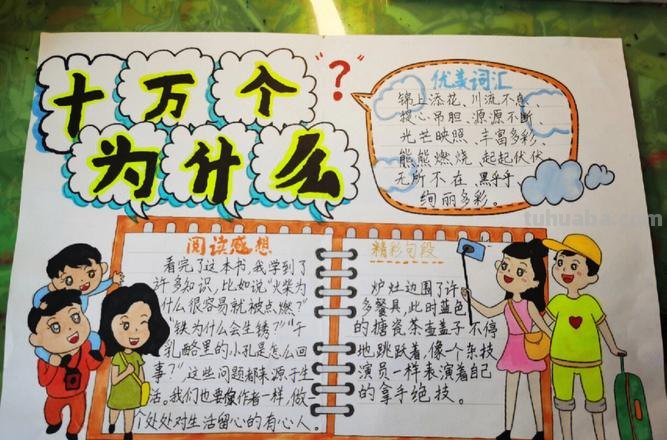 十万个
为什么
"?"
优美词汇
锦上添花、川流不息、
提心吊胆、源源不断
光芒映照、丰富多彩、
熊熊燃烧、起起伏伏
无所不在、黑乎乎、
绚丽多彩。
tuhuaba.com
阅读感想
看完了这本书,我学到了
许多知识,比如说"火柴为
什么很容易就被点燃?"
"铁为什么会生锈?""干
乳酪里的小孔是怎么回
事?",这些问题都来源于生
活。我们也要像作者一样,做一
个处处对生活留心的有心人。
精彩句段
炉灶边围了许
多餐具,此时蓝色
的搪瓷茶壶盖子不停
地跳跃着,像一个杂技
演员一样表演着自己
的拿手绝技。